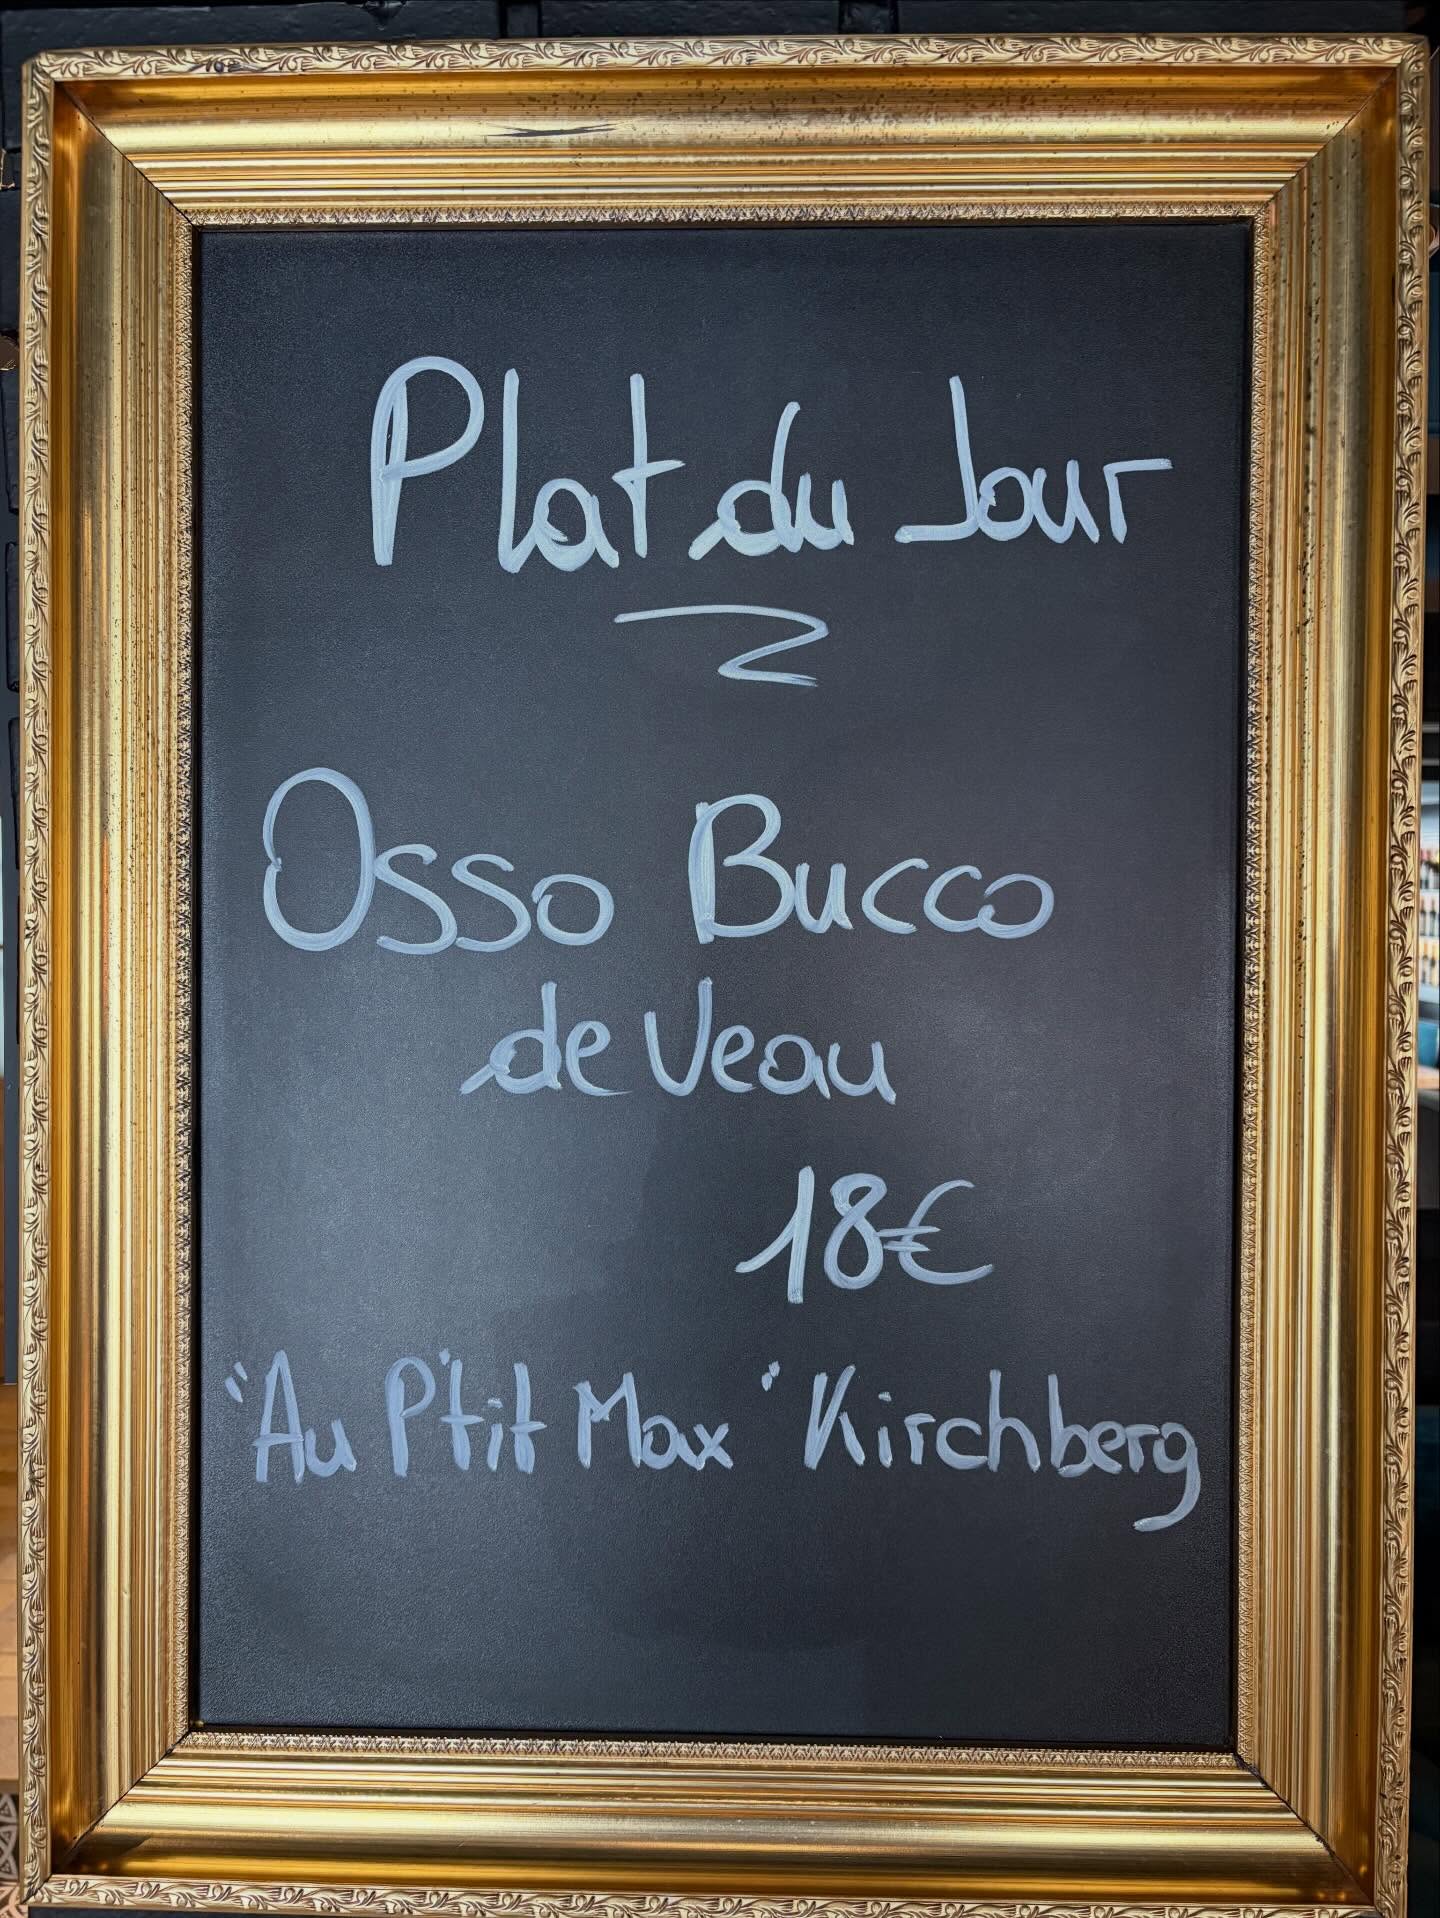 Plat du Jour
Osso Bucco
de Veau
18€
"Au P'tit Max" Kirchberg